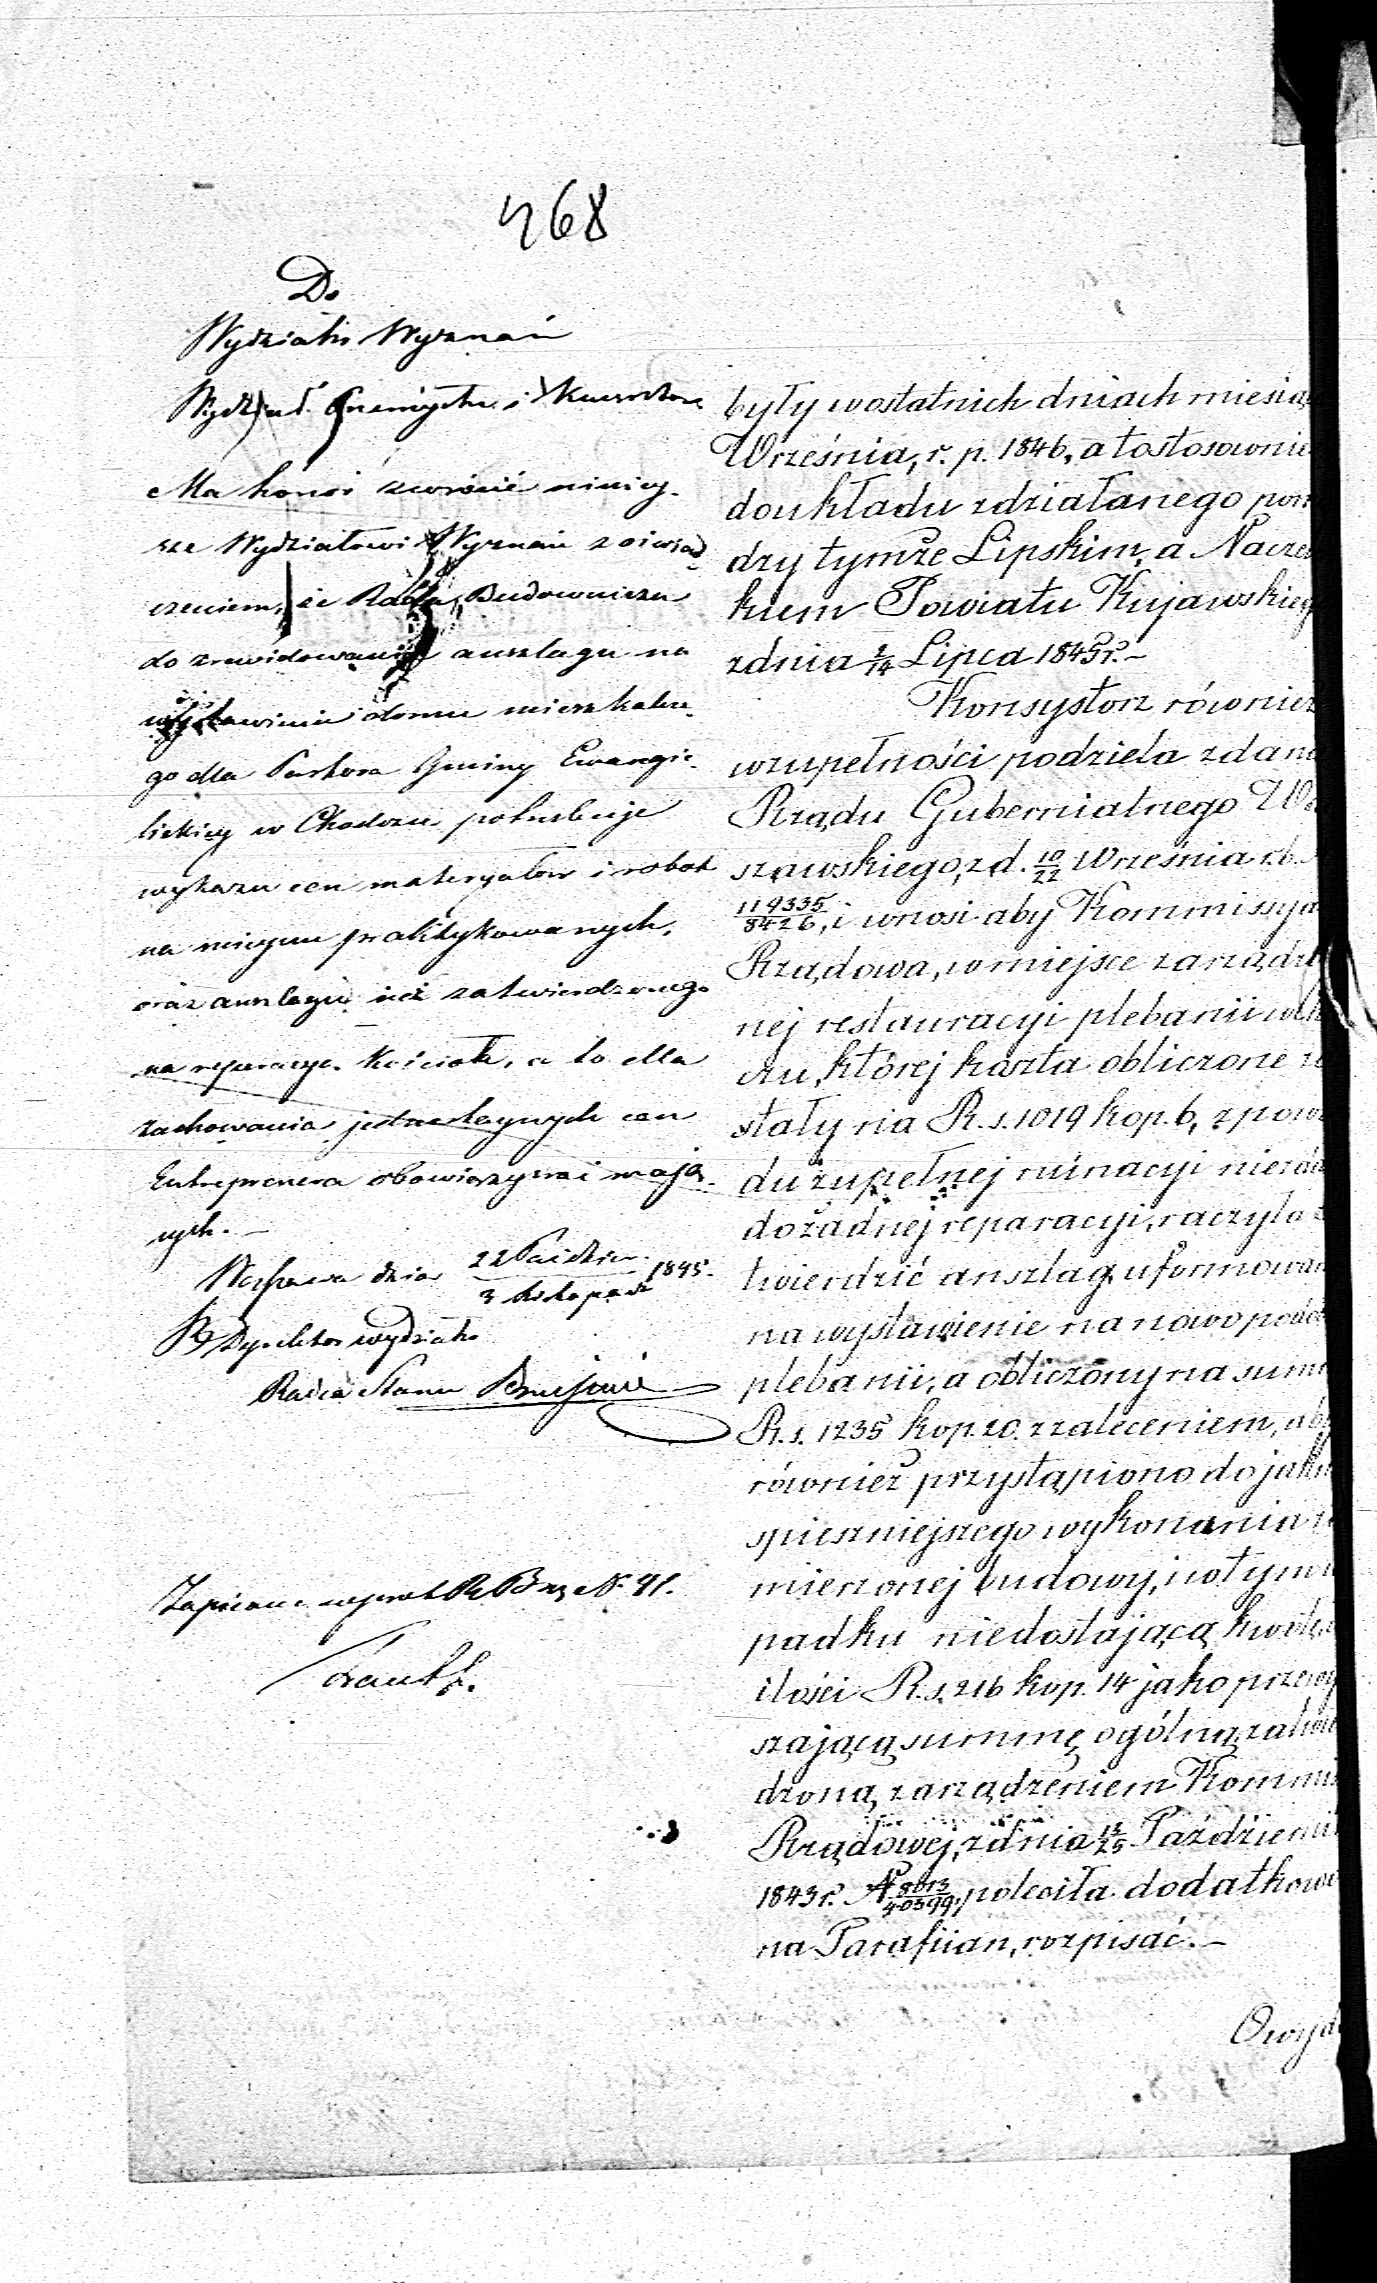 468
Do
Wydziału Wyznań
Wydział Przemysłu i Kunsztów
Ma honor zwrócić niniey-
sze Wydziałowi Wyznań z oświad-
czeniem, że Rada Budownicza
do zrewidowania anszlagu na
wystawienie domu mieszkalne-
go dla Pastora Gminy Ewangie-
lickiey w Chodczu potrzebuje
wykazu cen materyałów i robot
na mieyscu praktykowanych,
oraz anszlagu już zatwierdzonego
na reperacye Kościoła, a to dla
zachowania jednostaynych cen
Entreprenera obowiązywać mają-
cych.—
Warszawa dnia 22 Paździer./3 Listopada 1845.
Dyrektor Wydziału
Radca Stanu
Zapisano N. 41.
były w ostatnich dniach miesią
Września, r. p. 1846, a to stosownie
do układu zdziałanego pom
dzy tymże Lipskim, a Naczel
kiem Powiatu Kujawskieg
z dnia 2/14 Lipca 1845 r.—
Konsystorz również
w zupełności podziela zdani
Rządu Gubernialnego Wa
szawskiego, z d. 10/22 Września r. b. N
119335/8426, i wnosi aby Kommissyja
Rządowa, w miejsce zarządzo
nej restauracyi plebanii w Ch
czu, której koszta obliczone zo
stały na R. s. 1019 kop. 6, z powo
du zupełnej ruinacyi niezda
do żadnej reparacyi, raczyła z
twierdzić anszlag uformowan
na wystawienie na nowo podob
plebanii, a obliczony na summ
R. s. 1235 kop. 20. z zaleceniem, aby
również przystąpiono do jakn
spieszniejszego wykonania za
mierzonej budowy, i w tym w
padku niedostającą kwotę w
ilości R. s. 216 kop. 14 jako przewy
szającą summę ogólną zatwie
dzoną zarządzeniem Kommis
Rządowej, z dnia 13/25 Paździemi
1843 r. N 8613/40399, poleciła dodatkowo
na Parafiian, rozpisać.—
O wyda